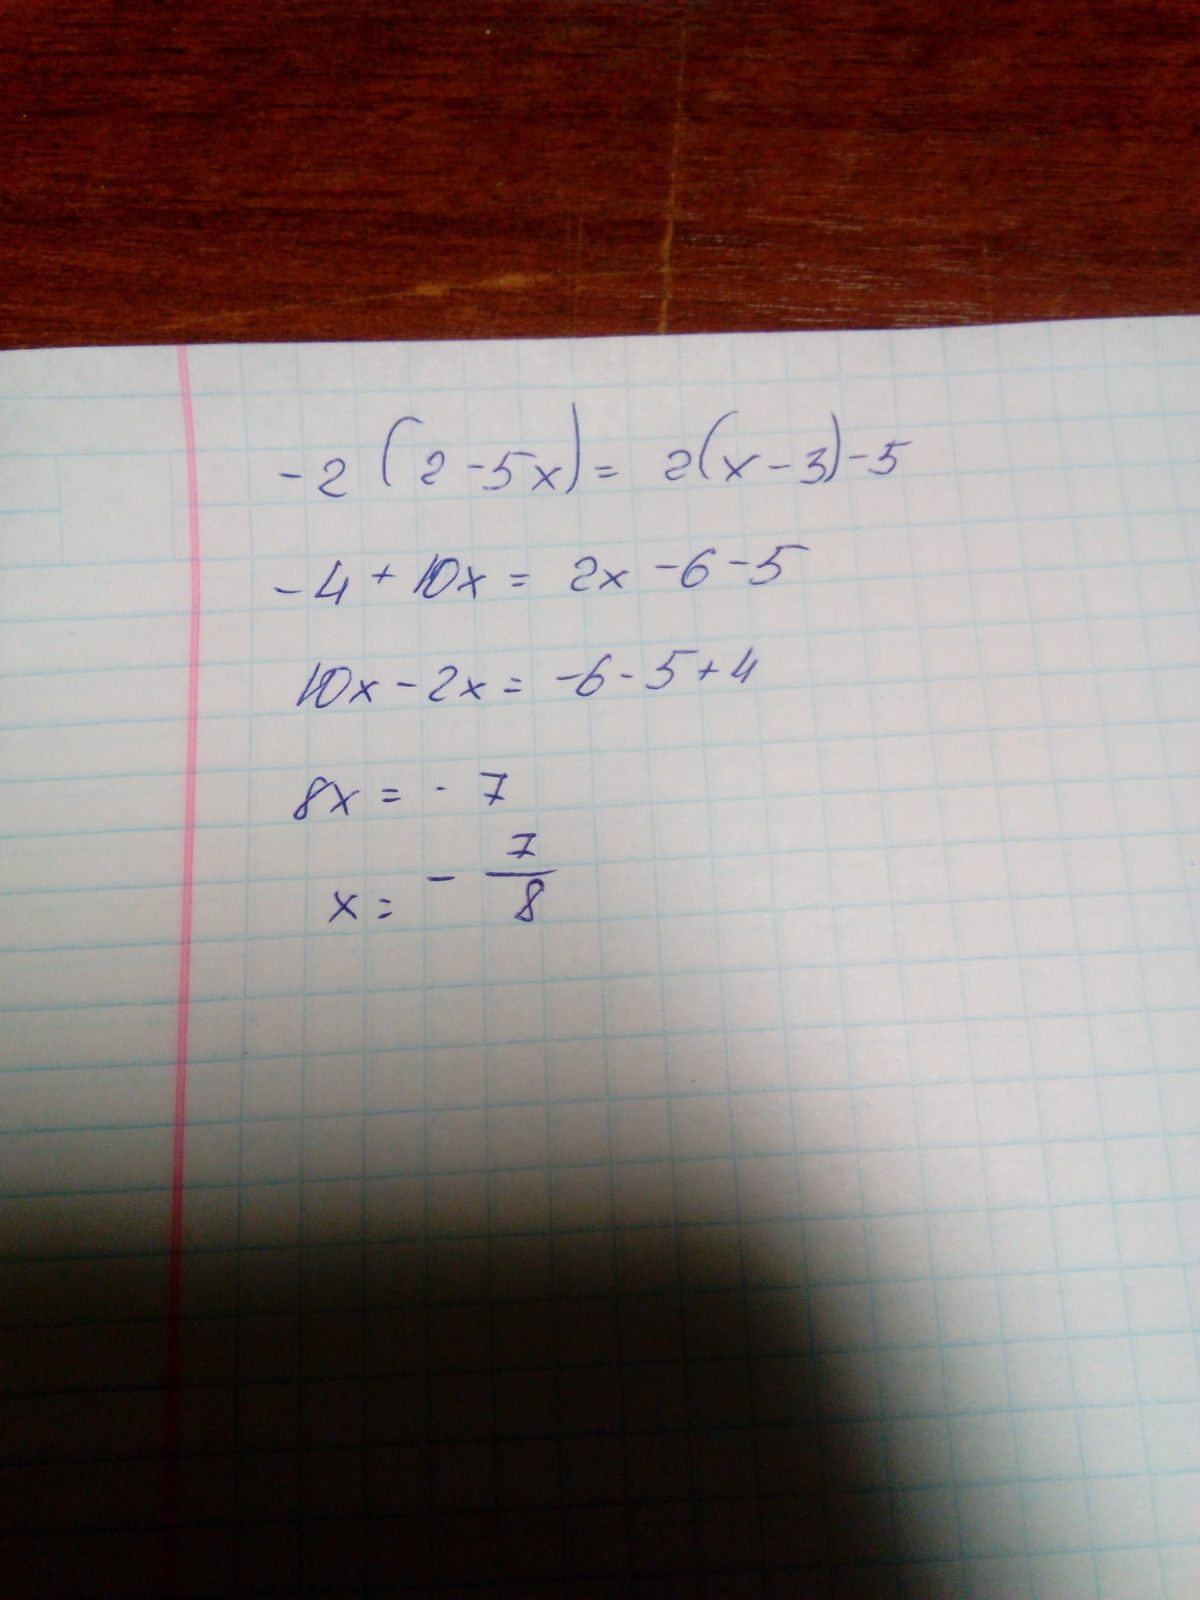 -2(2-5x)= 2(x-3)-5
-4+10x= 2x-6-5
10x-2x= -6-5+4
8x= -7
x= -7/8